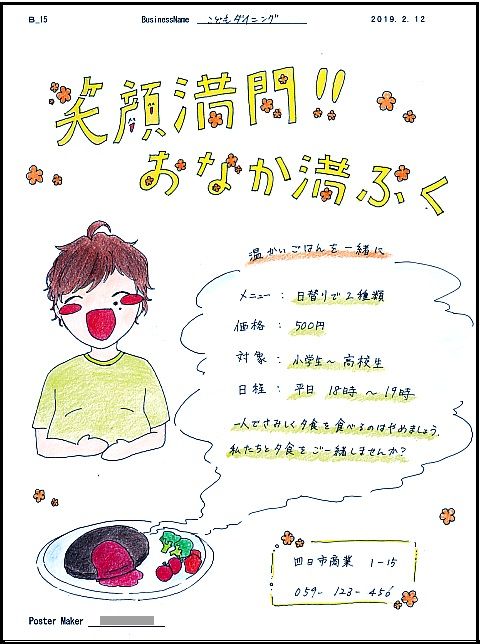 B_15 BusinessName こどもダイニング 2019. 2. 12
笑顔満門!!
おなか満ふく
温かいごはんを一緒に
メニュー : 日替りで2種類
価格 : 500円
対象 : 小学生〜高校生
日程 : 平日 18時 〜 19時
一人でさみしく夕食を食べるのはやめましょう。
私たちと夕食をご一緒しませんか?
四日市商業 1-15
059- 123- 456
Poster Maker